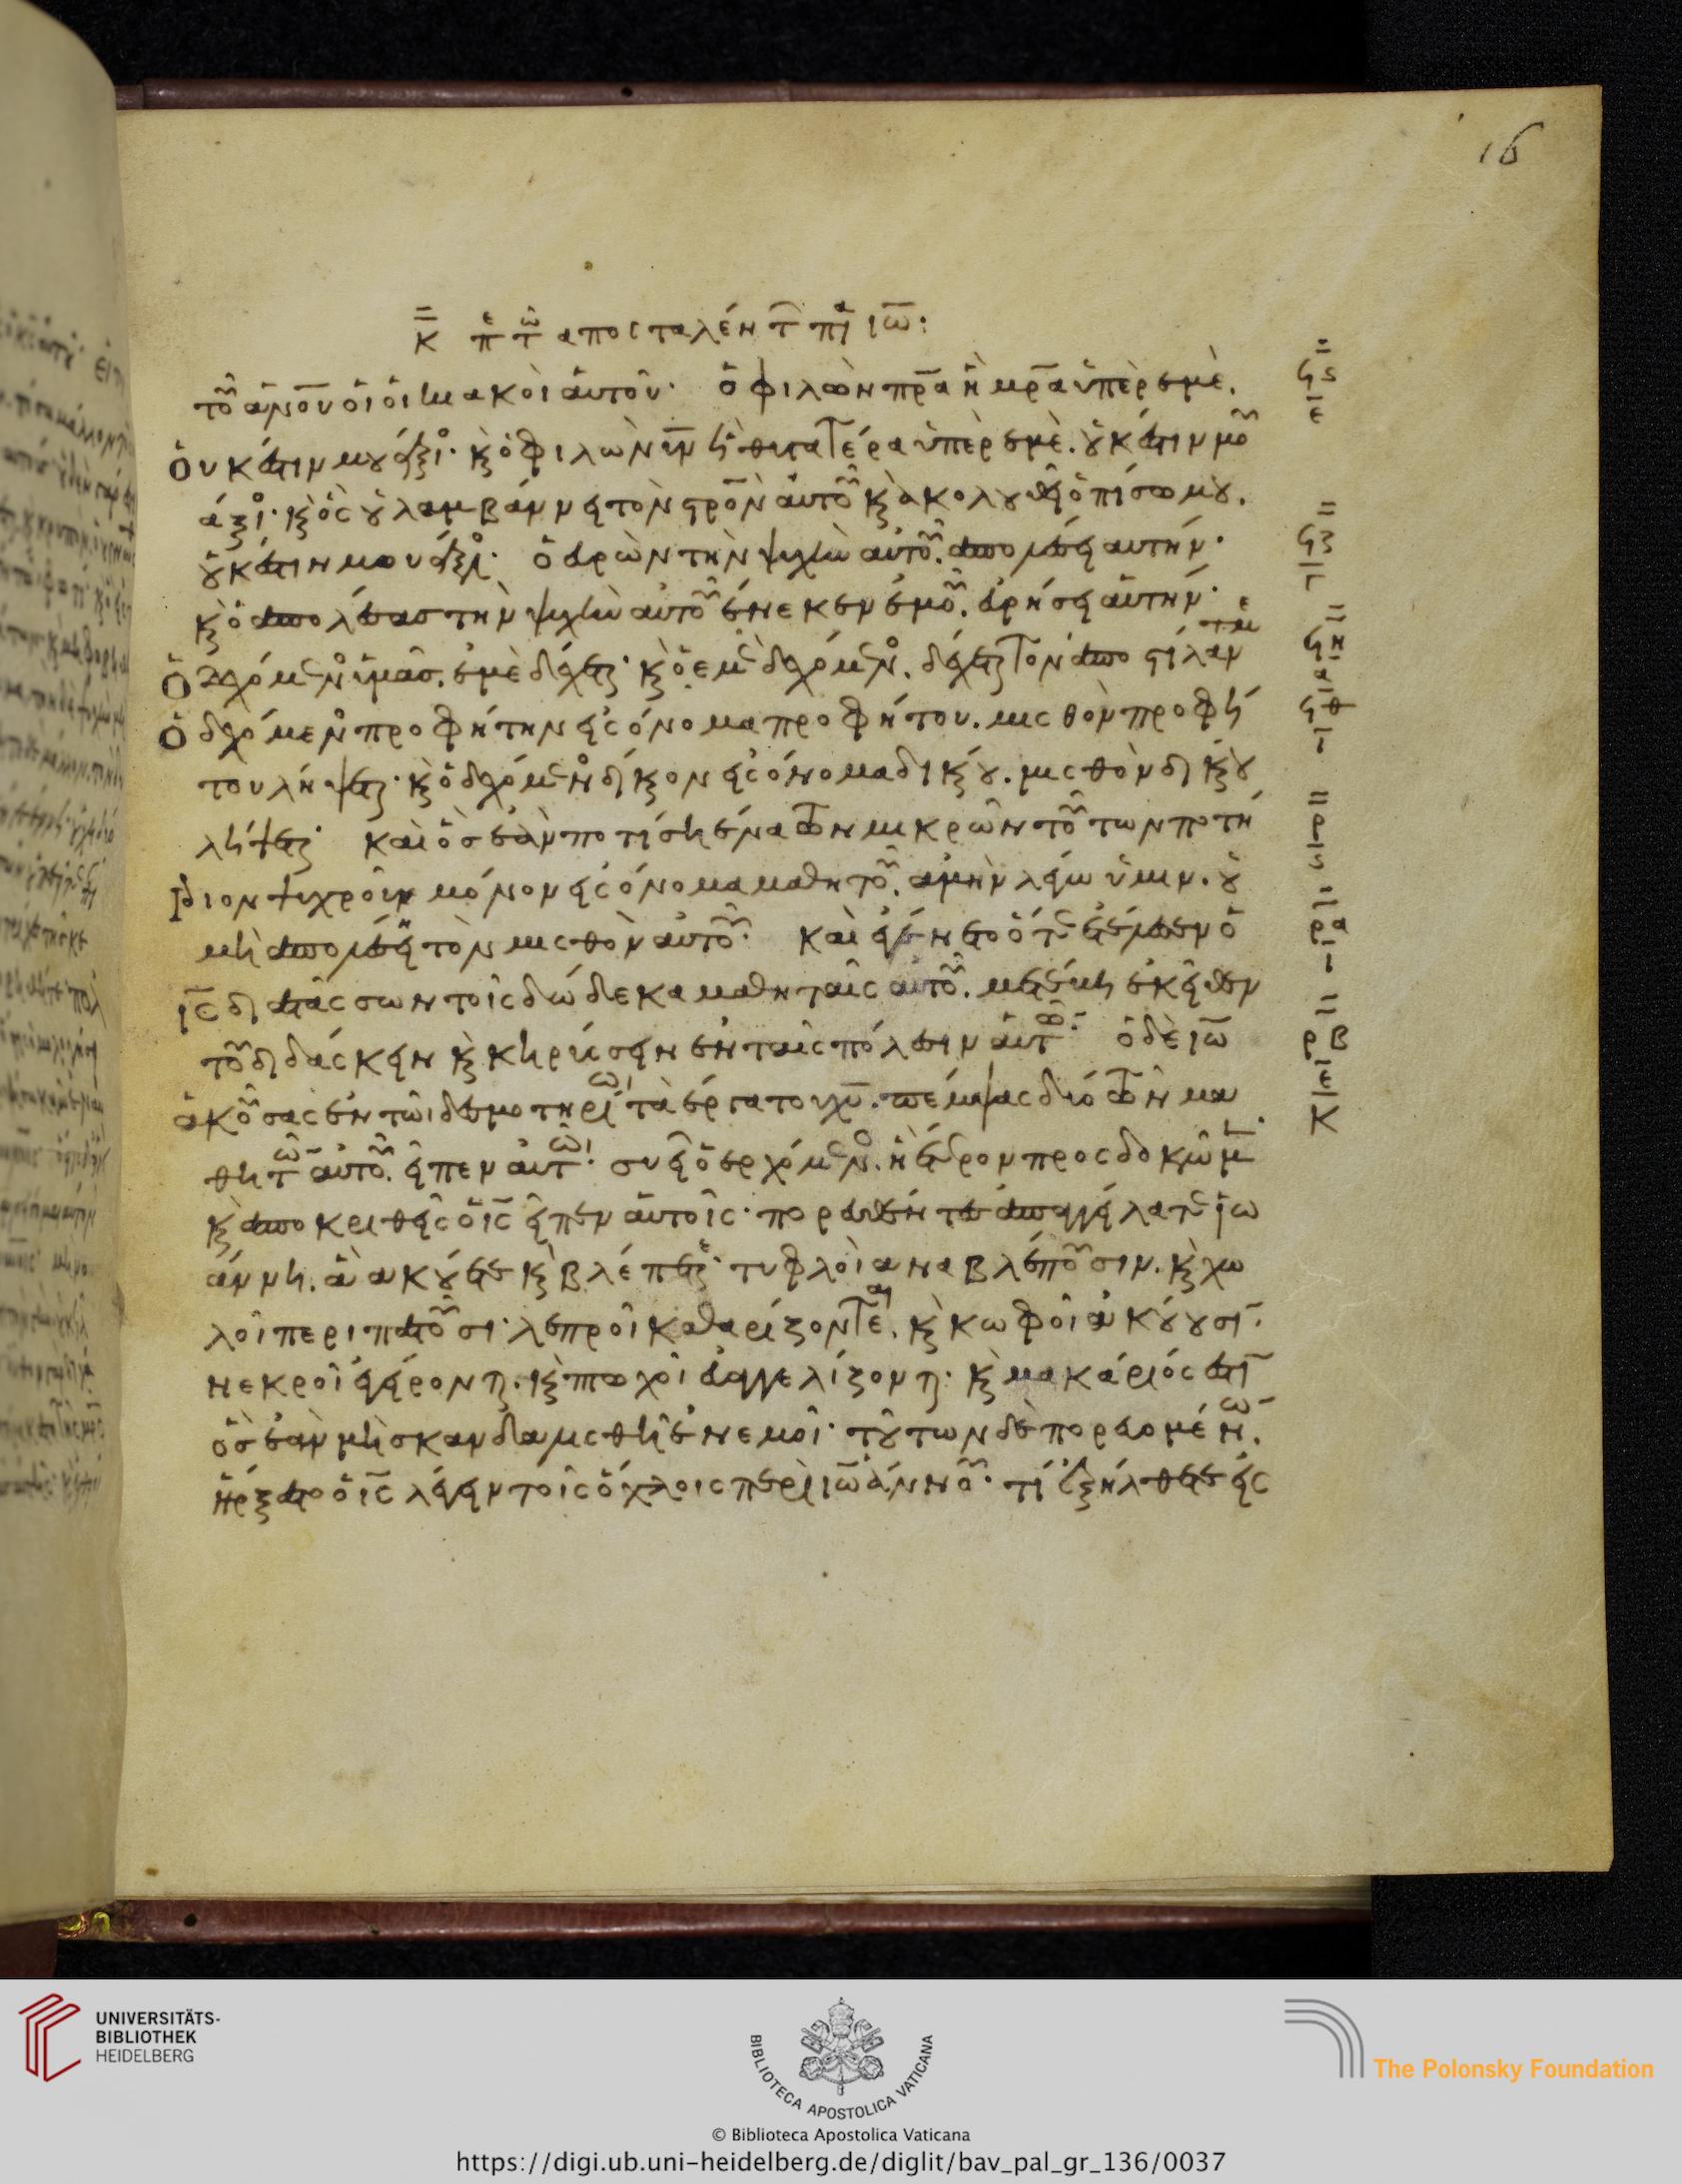 16
κ̄ πε τῶ αποσταλέντ πα ιω̄:
τοῦ ἀν̅ο̅υ̅ οἱ οἰκιακοὶ αὐτοῦ· ὁ φιλῶν πρ̅α ἢ μρ̅α ὑπὲρ ἐμὲ.
ὀυκ ἔστιν μου ἄξιος· κ ὁ φιλῶν υν̅ ἢ θυγατέρα ὑπὲρ ἐμὲ. οὐκ ἔστιν μου
άξιος· κ ὃς οὐ λαμβάνει τὸν στρο̅ν αὐτοῦ κ ἀκολουθεῖ ὀπίσω μου.
οὐκ έστιν μου άξιος· ὁ εὑρὼν τὴν ψυχὴν αὐτοῦ. ἀπολέσει αυτήν·
κ ὁ ἀπολέσας τὴν ψυχὴν αὐτοῦ ἕνεκεν ἐμοῦ. εὑρήσει αὐτήν·
ὁ δεχόμενος ὑμᾶς. ἐμὲ δέχεται· κ ὁ ἐμὲ δεχόμενος. δέχεται τὸν ἀποστείλαντά με
ὁ δεχόμενος προφήτην εἰς όνομα προφήτου. μισθὸν προφή
του λήψεται· κ ὁ δεχόμενος δίκαιον εἰς όνομα δικαίου. μισθὸν δικαίου
λήψεται· καὶ ὃς ἐὰν ποτίσῃ ἕνα τῶν μικρῶν τούτων ποτή
ριον ψυχροῦ μόνον εἰς όνομα μαθητοῦ. ἀμὴν λέγω ὑμιν. οὐ
μὴ ἀπολέσει τὸν μισθὸν αὐτοῦ· καὶ ἐγένετο ὅτε ἐτέλεσεν ὁ
ις̅ διατάσσων τοῖς δώδεκα μαθηταῖς αὐτοῦ. μετέβη ἐκεῖθεν
τοῦ διδάσκειν κ κηρύσσειν ἐν ταῖς πόλεσιν αὐτῶν· ὁ δὲ ιω̅
ἀκούσας ἐν τῶι δεσμοτηρίω τὰ έργα του χυ̅. πέμψας δύο τῶν μα
θητῶν αὐτοῦ. εἶπεν αὐτῶ· συ εἶ ὁ ερχόμενος. ἢ έτερον προσδοκῶμεν
κ ἀποκριθεὶς ὁ ις̅ εἶπεν αὐτοῖς· πορευθέντες ἀπαγγείλατε ιω
άννη. ἃ ακούετε κ βλέπετε· τυφλοὶ αναβλέπουσιν. κ χω
λοὶ περιπατοῦσι· λεπροὶ καθαρίζονται. κ κωφοὶ ἀκούουσι.
νεκροὶ ἐγείρονται. κ πτωχοὶ εὐαγγελίζονται· κ μακάριός ἐστιν
ὃς ἐὰν μὴ σκανδαλισθῆ ἐν εμοί· τούτων δὲ πορευομένων.
ἤρξατο ὁ ις̅ λέγειν τοῖς ὄχλοις περὶ ιω̅άννου· τί ἐξήλθετε εἰς
ϟϛ
ε
ϟζ
γ
ϟη
α
ϟθ
ι
ρ
ϛ
ρα
ι
ρβ
ε
κ
UNIVERSITÄTS-
BIBLIOTHEK
HEIDELBERG
BIBLIOTECA APOSTOLICA VATICANA
The Polonsky Foundation
© Biblioteca Apostolica Vaticana
https://digi.ub.uni-heidelberg.de/diglit/bav_pal_gr_136/0037